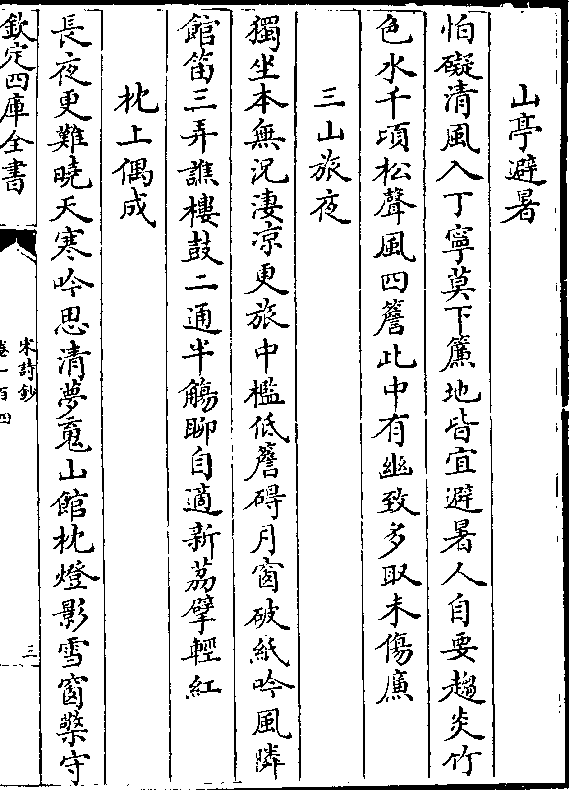 山亭避暑
怕礙清風入丁寧莫下簾地皆宜避暑人自要趨炎竹
色水千頃松聲風四簷此中有幽致多取未傷廉
三山旅夜
獨坐本無況淒凉更旅中檻低簷碍月窗破紙吟風隣
館笛三弄譙樓鼓二通半觴聊自適新荔擘輕紅
枕上偶成
長夜更難曉天寒吟思清夢䰟山館枕燈影雪窗檠守
欽定四庫全書
宋詩鈔
卷一百四
三